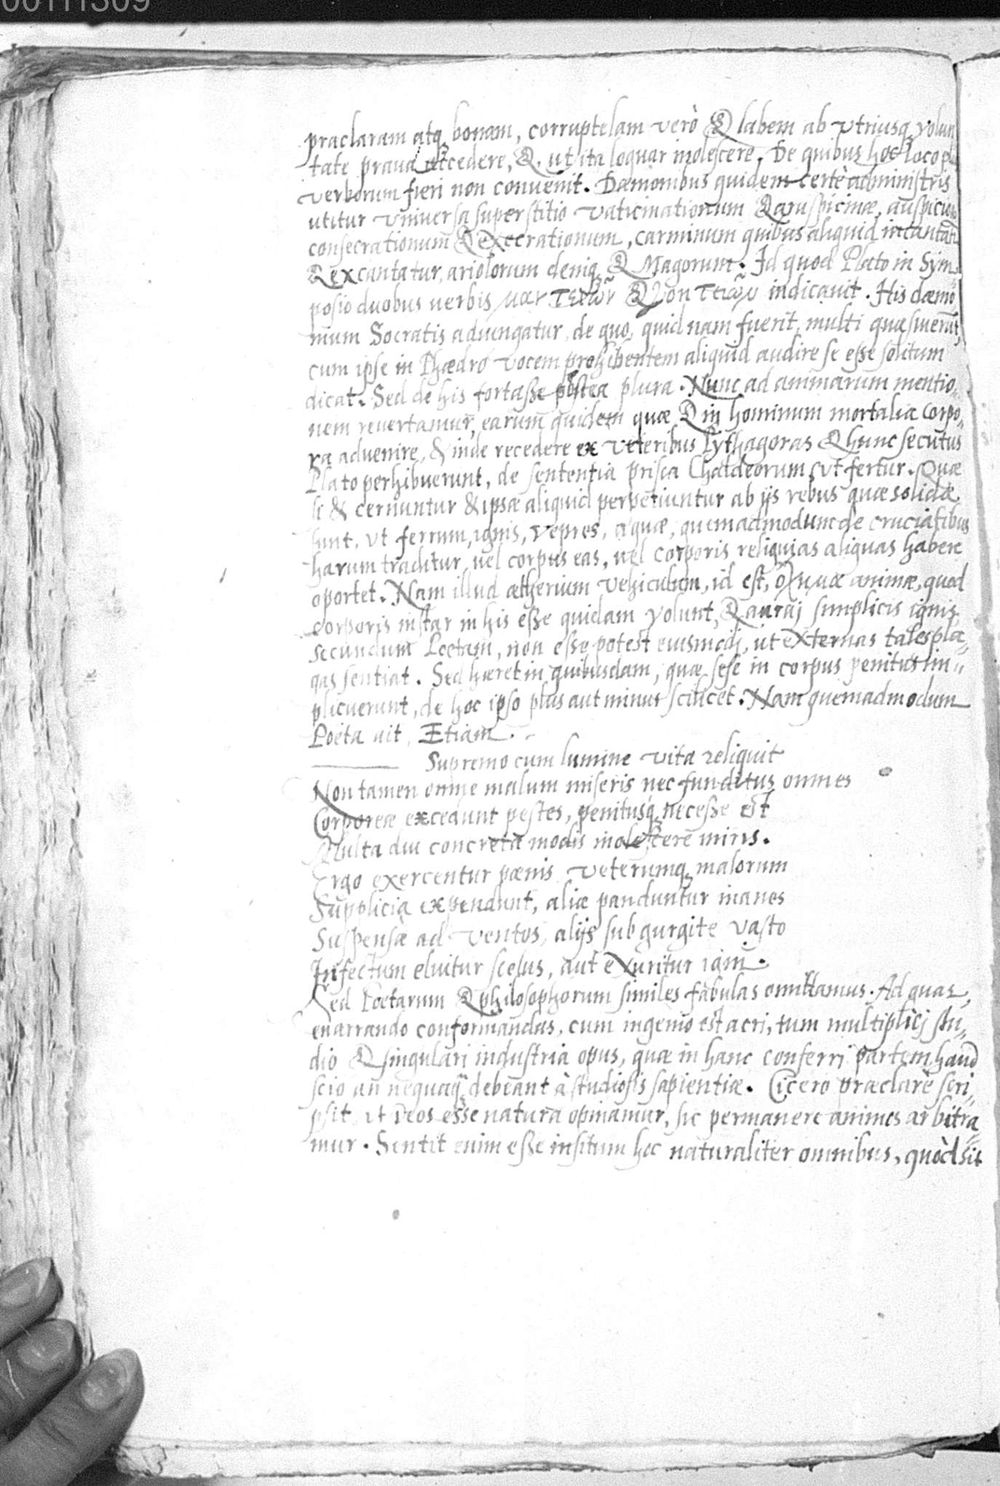 00111309
praclaram atq bonam, corruptelam verò & labem ab vtriusq volun
tate prava accedere, &, ut ita loquar inolescere. De quibus hoc loco
verborum fieri non convenit. Dæmonibus quidem certè administris
utitur vniversa superstitio vaticinationum & aruspicinæ, auspiciu
consecrationum & execrationum, carminum quibus aliquid incantat
& excantatur, ariolorum deniq & Magorum. Id quod Plato in Sym
posio duobus verbis indicavit. His dæmo
nium Socratis adiungatur, de quo, quidnam fuerit, multi quæsiverut,
cum ipse in Phædro vocem prohibentem aliquid audire se esse solitum
dicat. Sed de his fortasse postea plura. Nunc ad animarum mentio
nem revertamur, earum quidem quæ & in hominum mortalia corpo
ra advenire, & inde recedere ex veteribus Pythagoras & hunc secutus
Plato perhibuerunt, de sententia prisca Chaldeorum, vt fertur. Quæ
si & cernuntur & ipsæ aliquid perpetiuntur ab ijs rebus quæ solidæ
sunt, vt ferrum, ignis, vepres, aquæ, quemadmodum de cruciatibus
harum traditur, vel corpus eas, vel corporis reliquias aliquas habere
oportet. Nam illud ætherium vehiculum, id est, animæ, quod
corporis instar in his esse quidam volunt, & aurai simplicis ignis
secundum Poetam, non esse potest eiusmodi, ut externas tales pla
gas sentiat. Sed hæret in quibusdam, quæ sese in corpus penitus im
plicuerunt, de hoc ipso plus aut minus scilicet. Nam quemadmodum
Poeta ait, Etiam.
Supremo cum lumine vita reliquit
Non tamen omne malum miseris nec funditus omnes
Corporeæ excedunt pestes, penitusq necesse est
Multa diu concreta modis inolescere miris.
Ergo exercentur pænis veterumq malorum
Supplicia expendunt, aliæ panduntur inanes
Suspensæ ad ventos, alijs sub gurgite vasto
Infectum eluitur scelus, aut exuritur igni.
Sed Poetarum & philosophorum similes fabulas omittamus. Ad quas
enarrando conformandas, cum ingenio est acri, tum multiplici stu
dio & singulari industria opus, quæ in hanc conferri partem haud
scio an nequaq debeant à studiosis sapientiæ. Cicero præclarè scri
psit, ut Deos esse natura opinamur, sic permanere animos arbitra
mur. Sentit enim esse insitum hoc naturaliter omnibus, quòd sit